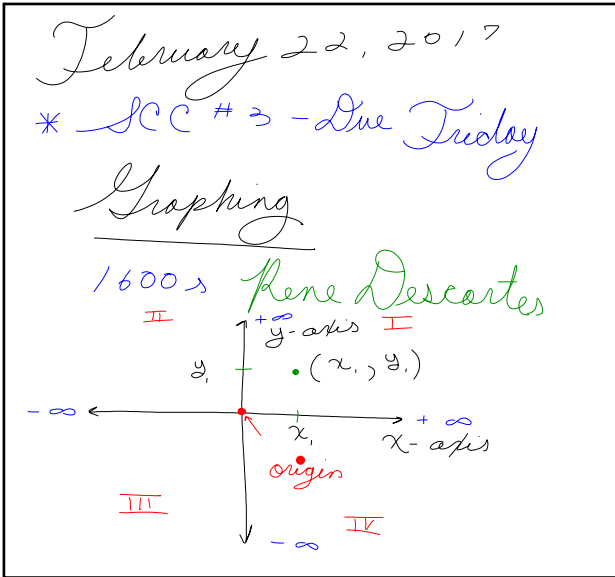 February 22, 2017
* SCC #3 - Due Friday
Graphing
1600s Rene Descartes
II +∞ y-axis I
y₁ (x₁, y₁)
-∞ +∞
x₁ x-axis
origin
III IV
-∞